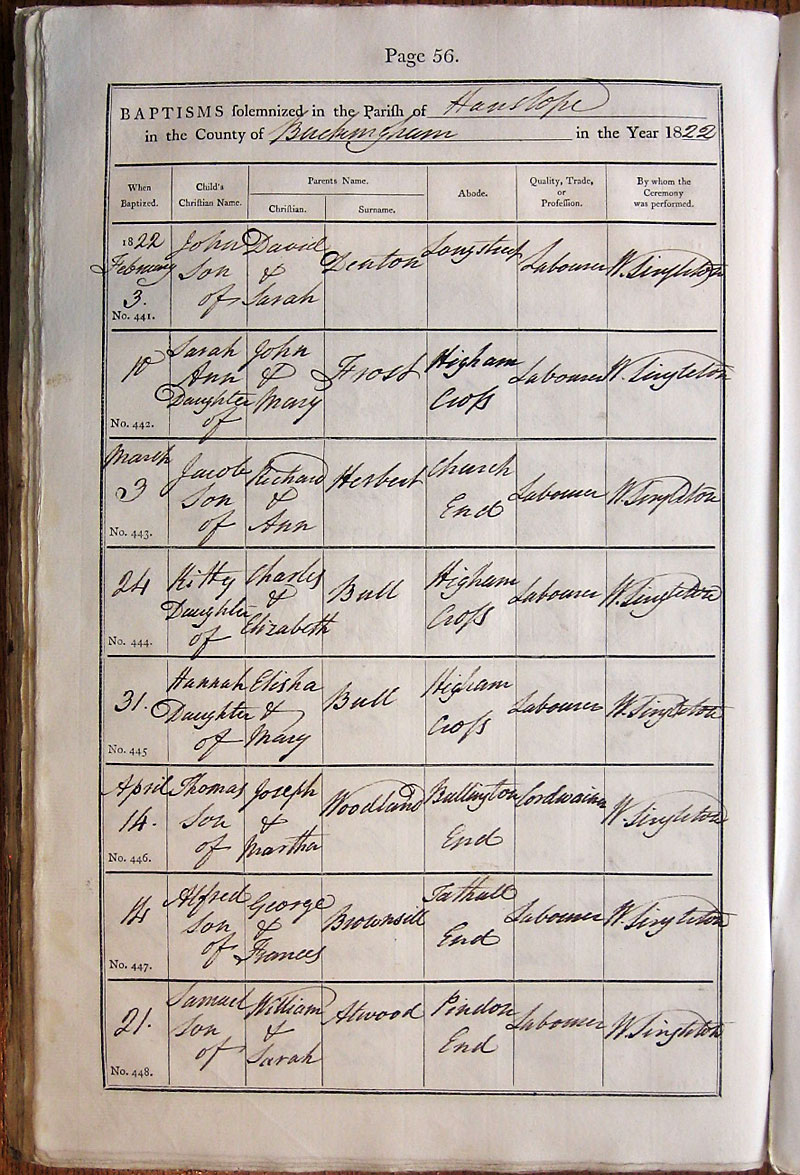 Page 56.
BAPTISMS solemnized in the Parish of Hanslope
in the County of Buckingham in the Year 1822
When Baptized. Child's Christian Name. Parents Name. Abode. Quality, Trade, or Profession. By whom the Ceremony was performed.
Christian. Surname.
1822 John David
February Son & Denton Longstreet Labourer W. Singleton
3. of Sarah
No. 441.
Sarah John
10 Ann & Frost Higham Labourer W. Singleton
Daughter Mary Cross
of
No. 442.
March Jacob Richard Herbert Church Labourer W. Singleton
3 Son & End
of Ann
No. 443.
24 Kitty Charles Bull Higham Labourer W. Singleton
Daughter & Cross
of Elizabeth
No. 444.
31. Hannah Elisha Bull Higham Labourer W. Singleton
Daughter & Cross
of Mary
No. 445
April Thomas Joseph Woodland Bullington Cordwainer W. Singleton
14. Son & End
of Martha
No. 446.
14 Alfred George Brownsill Tathall Labourer W. Singleton
Son & End
of Frances
No. 447.
21. Samuel William Atwood Pindon Labourer W. Singleton
Son & End
of Sarah
No. 448.